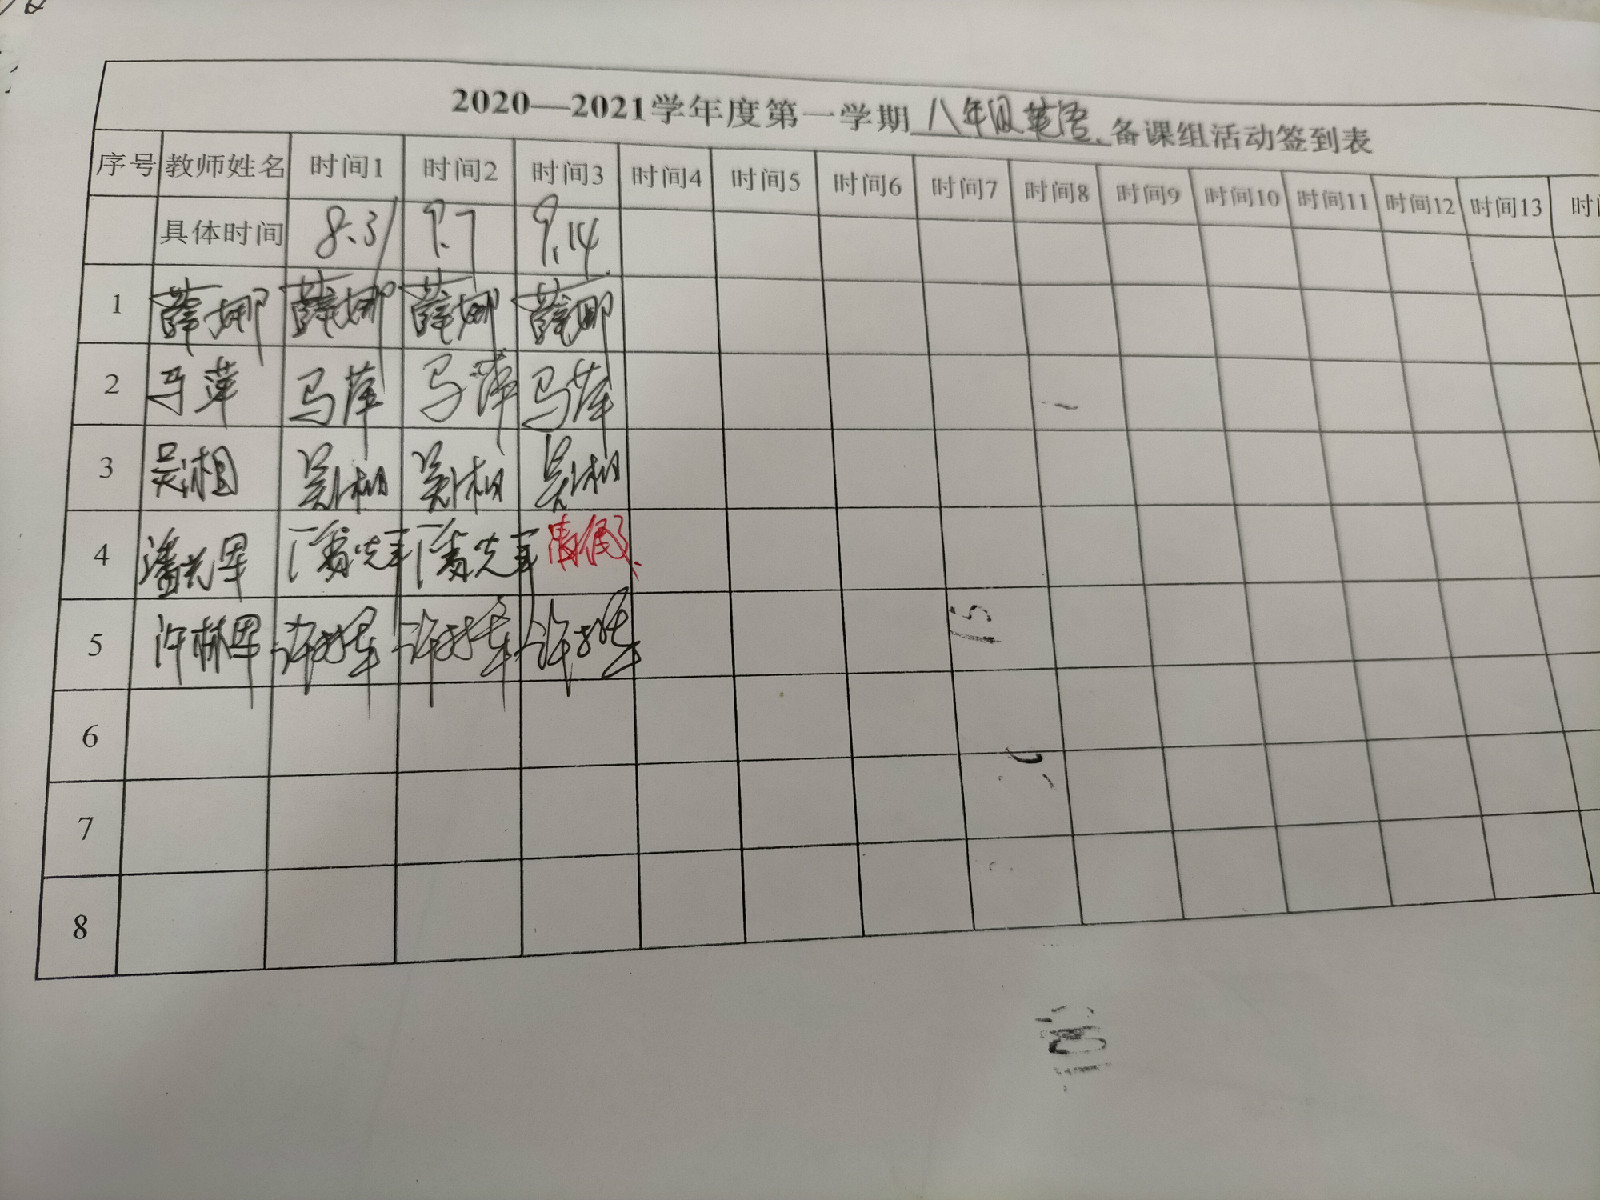 2020—2021学年度第一学期 八年级英语 备课组活动签到表
序号 教师姓名 时间1 时间2 时间3 时间4 时间5 时间6 时间7 时间8 时间9 时间10 时间11 时间12 时间13 时
具体时间 8.31 9.7 9.14
1 薛娜 薛娜 薛娜 薛娜
2 马萍 马萍 马萍 马萍
3 吴相 吴相 吴相 吴相
4 潘光军 潘光军 潘光军 请假
5 许林军 许林军 许林军 许林军
6
7
8